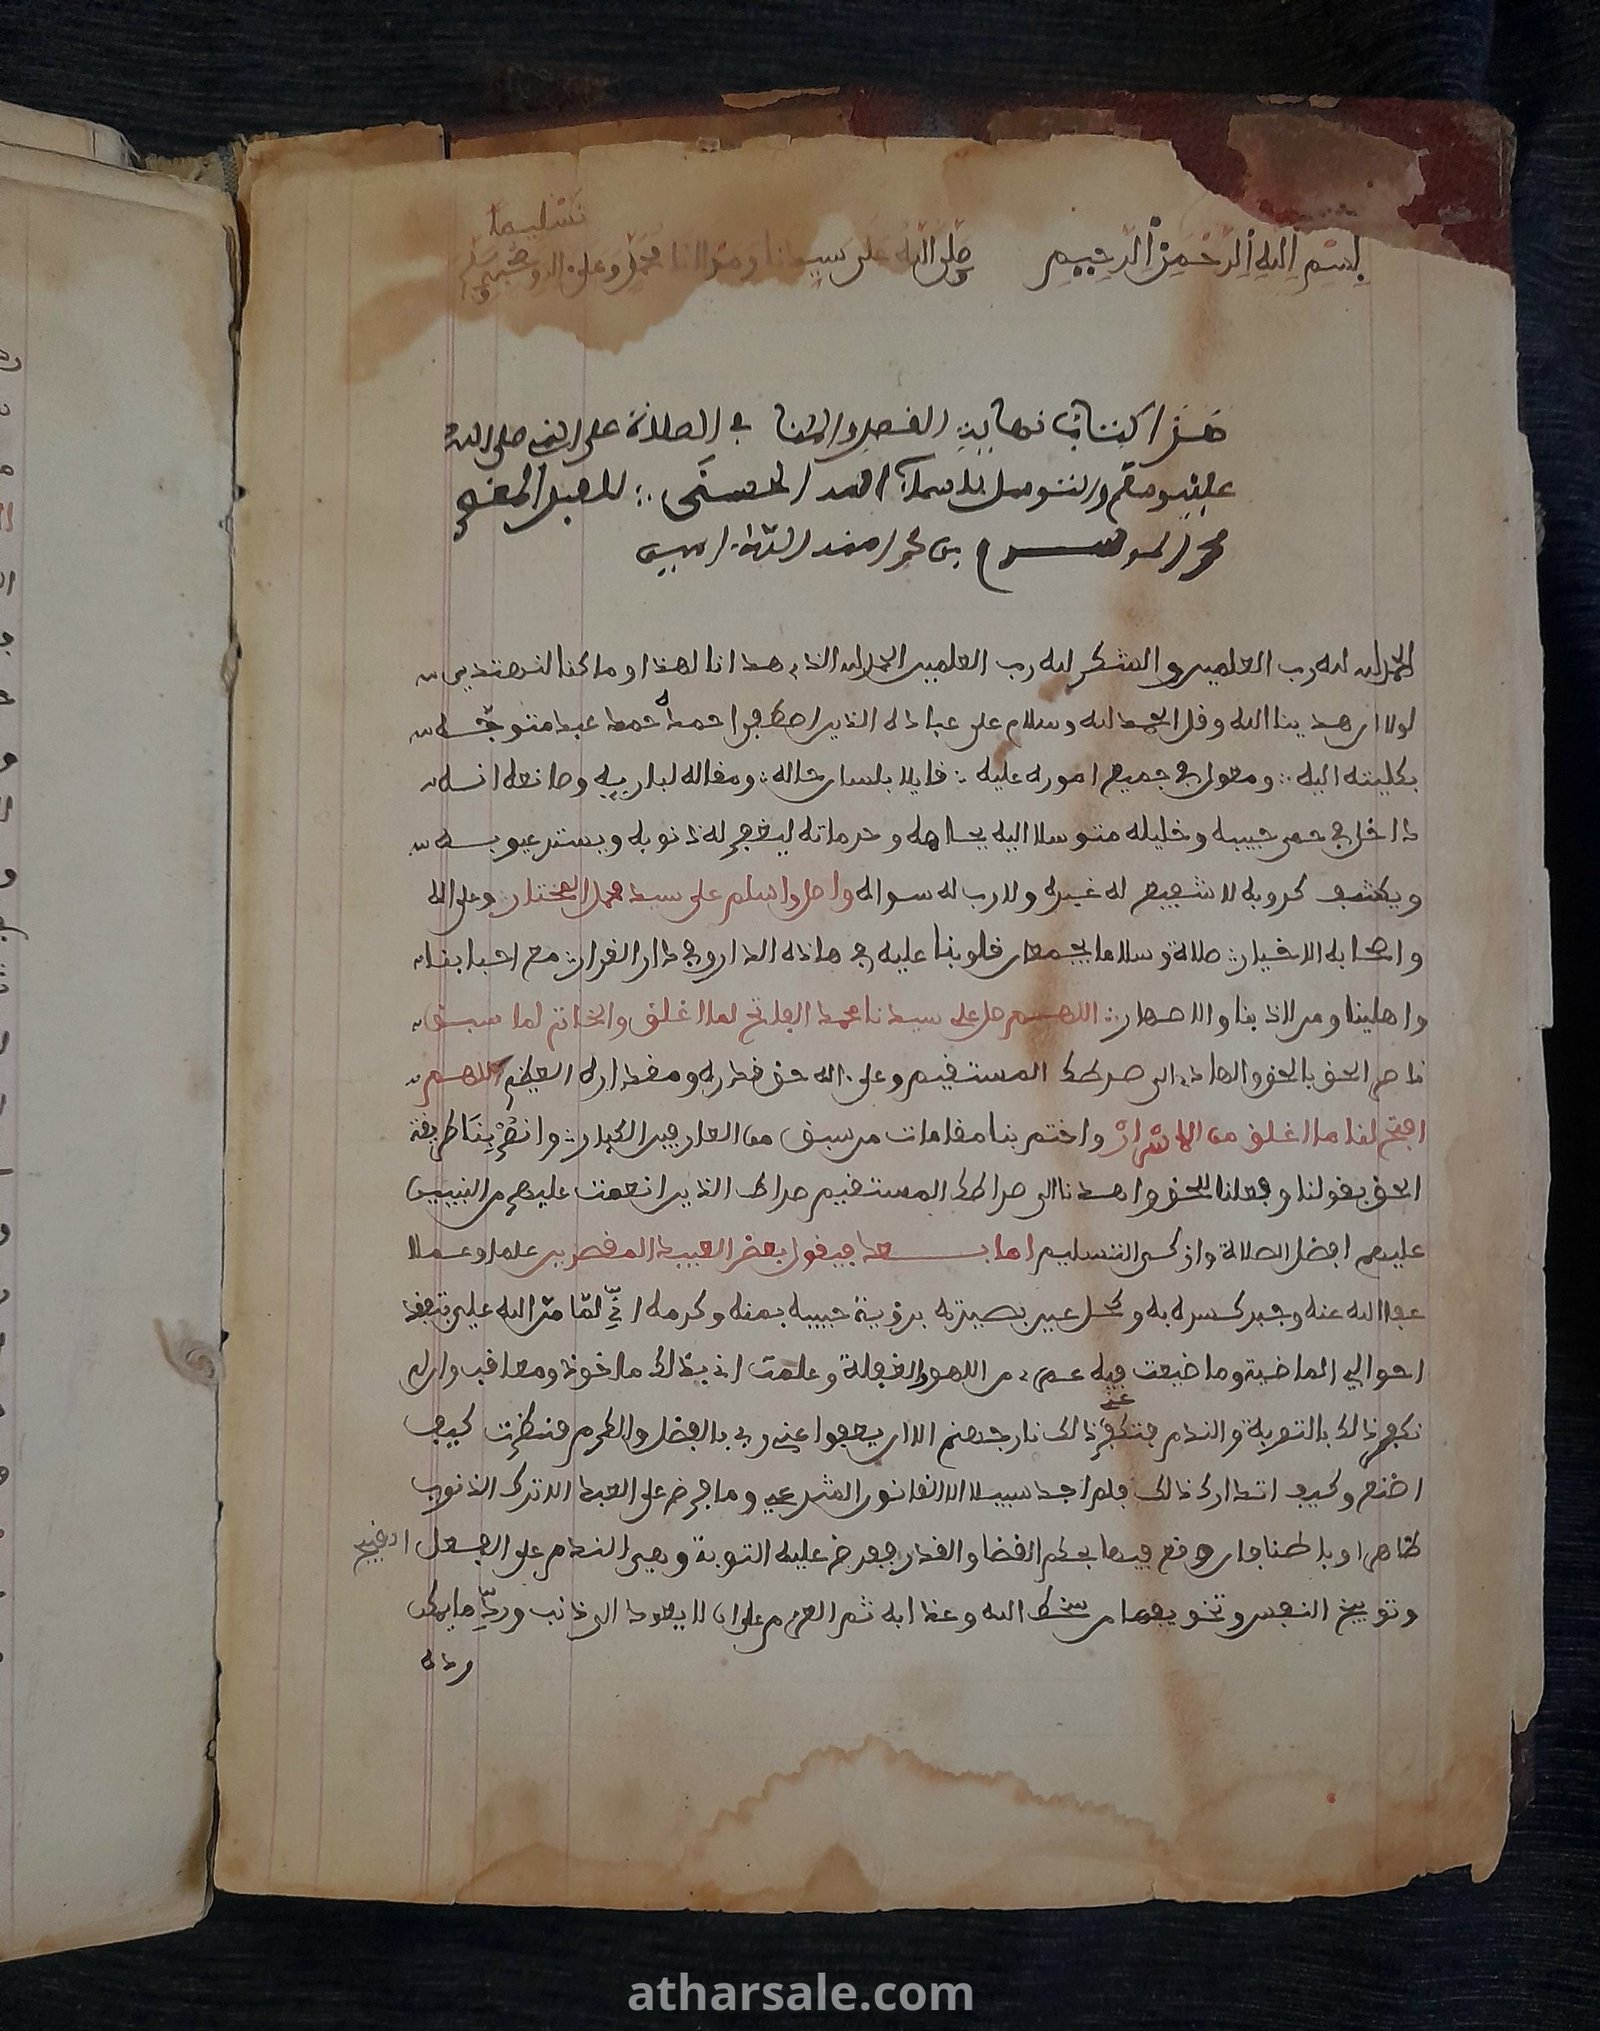 بسم الله الرحمن الرحيم صلى الله على سيدنا ومولانا محمد وعلى اله وصحبه وسلم
تسليما
هذا كتاب نهاية الفصل والمنا في الصلاة على النبي صلى الله
عليه وسلم والتوسل بالاسماء الحسنى للعبد
محمد بن محمد
الحمد لله رب العلمين والشكر لله رب العلمين الحمد لله الذي هدانا لهذا وما كنا لنهتدي
لولا ان هدينا الله وقل الحمد لله وسلام على عباده الذين اصطفى احمده حمد عبد متوجه
بكليته اليه ومعول في جميع اموره عليه قايلا بلسان حاله ومقاله لباريه وصانعه انه
داخل في حمى حبيبه وخليله متوسلا اليه بجاهه وحرماته ليغفر له ذنوبه ويستر عيوبه
ويكشف كروبه لا شفيع له غيره ولا رب له سواه واصلي واسلم على سيد محمد المختار وعلى اله
واصحابه الاخيار صلاة وسلاما يجمعان قلوبنا عليه في هاذه الدار وفي دار القرار مع احبابنا
واهلينا ومن لاذ بنا والاصهار اللهم صل على سيدنا محمد الفاتح لما اغلق والخاتم لما سبق
ناصر الحق بالحق والهادي الى صرطك المستقيم وعلى اله حق قدره ومقداره العظيم اللهم
افتح لنا ما اغلق من الاسرار واختم بنا مقامات من سبق من العارفين الكبار وانصر بنا طريقة
الحق بقولنا وفعلنا للحق واهدنا الى صراطك المستقيم صراط الذين انعمت عليهم من النبيين
عليهم افضل الصلاة وازكى التسليم اما بعد فيقول بعض العبيد المقصرين علما وعملا
عفا الله عنه وجبر كسره به وكحل عين بصيرته برؤية حبيبه بمنه وكرمه اني لما من الله علي بتفقد
احوالي الماضية وما ضيعت فيه عمري من اللهو والغفلة وعلمت اني بذلك ماخوذ ومعاقب وان لم
نكفر ذلك بالتوبة والندم فتكفر عني ذلك نار جهنم الا ان يعفوا عني ربي بالفضل والكرم فنظرت كيف
اصنع وكيف اتدارك ذلك فلم اجد سبيلا الا القانون الشرعي وما فرض على العبد الا ترك الذنوب
ظاهرا وباطنا فان وقع فيها بحكم القضا والقدر ففرض عليه التوبة وهي الندم على الفعل القبيح
وتوبيخ النفس وتخويفها من سخط الله وعذابه ثم العزم على ان لا يعود الى ذنب ورد ما يمكن
رده
atharsale.com